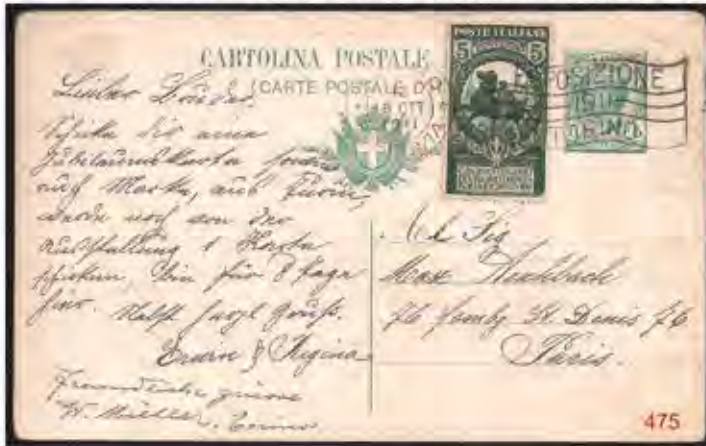 CARTOLINA POSTALE
(CARTE POSTALE D'
POSTE ITALIANE
5 5
OTT
ESPOSIZIONE
1911
Lieber Bruder.
Schicke dir eine
Jubiläumskarte sowie
auch Marke, aus Turin,
werde noch von der
Ausstellung 1 Karte
schicken, bin für 8 Tage
hier. herzl Gruß.
Erwin & Regina
Freundliche grüsse
W. Müller, Torino
Max
76 St. Denis 76
Paris.
475